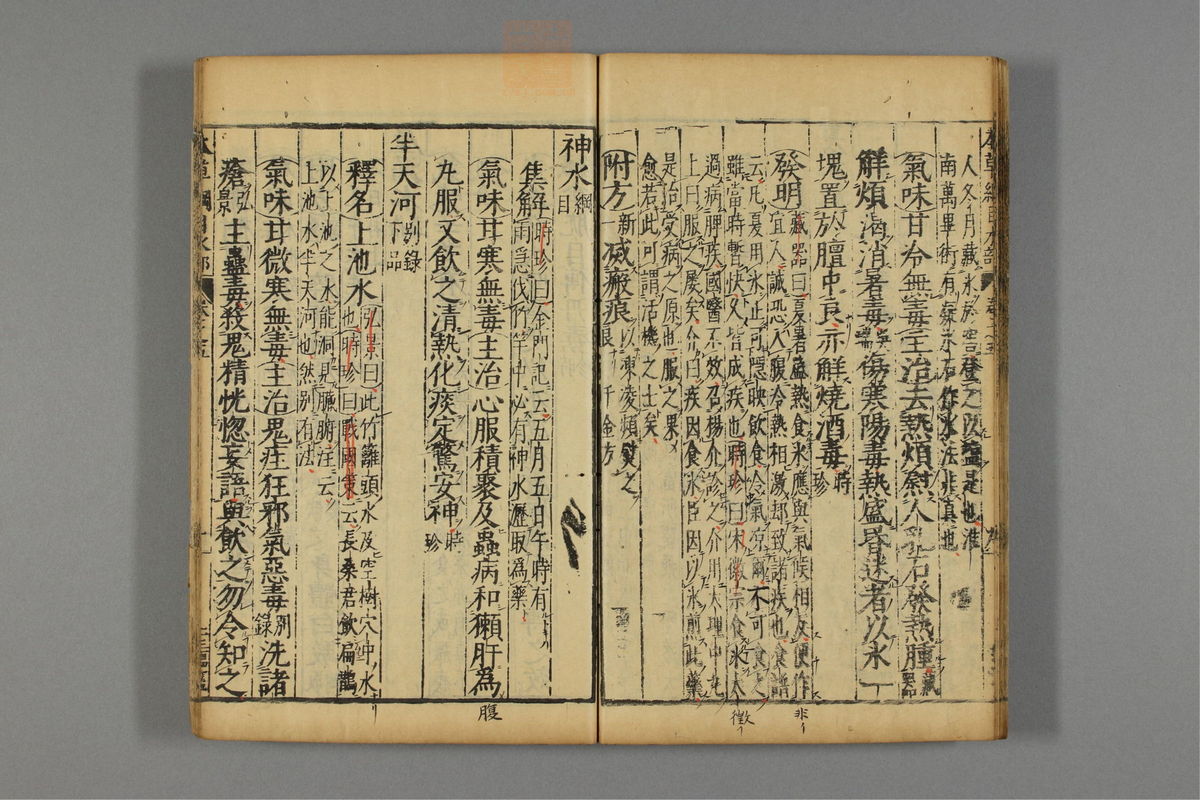 人冬月藏氷於窖登之以鹽是也淮
南萬畢術有凝水石作氷法非真也
氣味甘冷無毒主治去熱煩熨人乳石發熱腫藏器
解煩渴消暑毒吳瑞傷寒陽毒熱盛昏迷者以氷一
塊置於膻中良亦解燒酒毒時珍
發明藏器曰夏暑盛熱食氷應與氣候相反便作
宜人誠恐入腹冷熱相激却致諸疾也食譜
云凡夏用氷止可隱映飲食令氣凉爾不可食之
雖當時暫快久皆成疾也時珍曰宋徽宗食氷太
過病脾疾國醫不效召楊介診之介用大理中丸
上曰服之屢矣介曰疾因食氷臣因以氷煎此藥
是治受病之原也服之果
愈若此可謂活機之士矣
附方新一滅瘢痕以凍凌頻熨之良千金方
神水綱目
集解時珍曰金門記云五月五日午時有
雨急伐竹竿中必有神水瀝取為藥
氣味甘寒無毒主治心服積聚及蟲病和獺肝為
丸服又飲之清熱化痰定驚安神時珍
半天河別錄下品
釋名上池水弘景曰此竹籬頭水及空樹穴中水
也時珍曰戰國策云長桑君飲扁鵲
以上池之水能洞見臟腑注云
上池水半天河也然別有法
氣味甘微寒無毒主治鬼疰狂邪氣惡毒別錄洗諸
瘡弘景主蠱毒殺鬼精恍惚妄語與飲之勿令知之
本草綱目水部
腹
徵
非